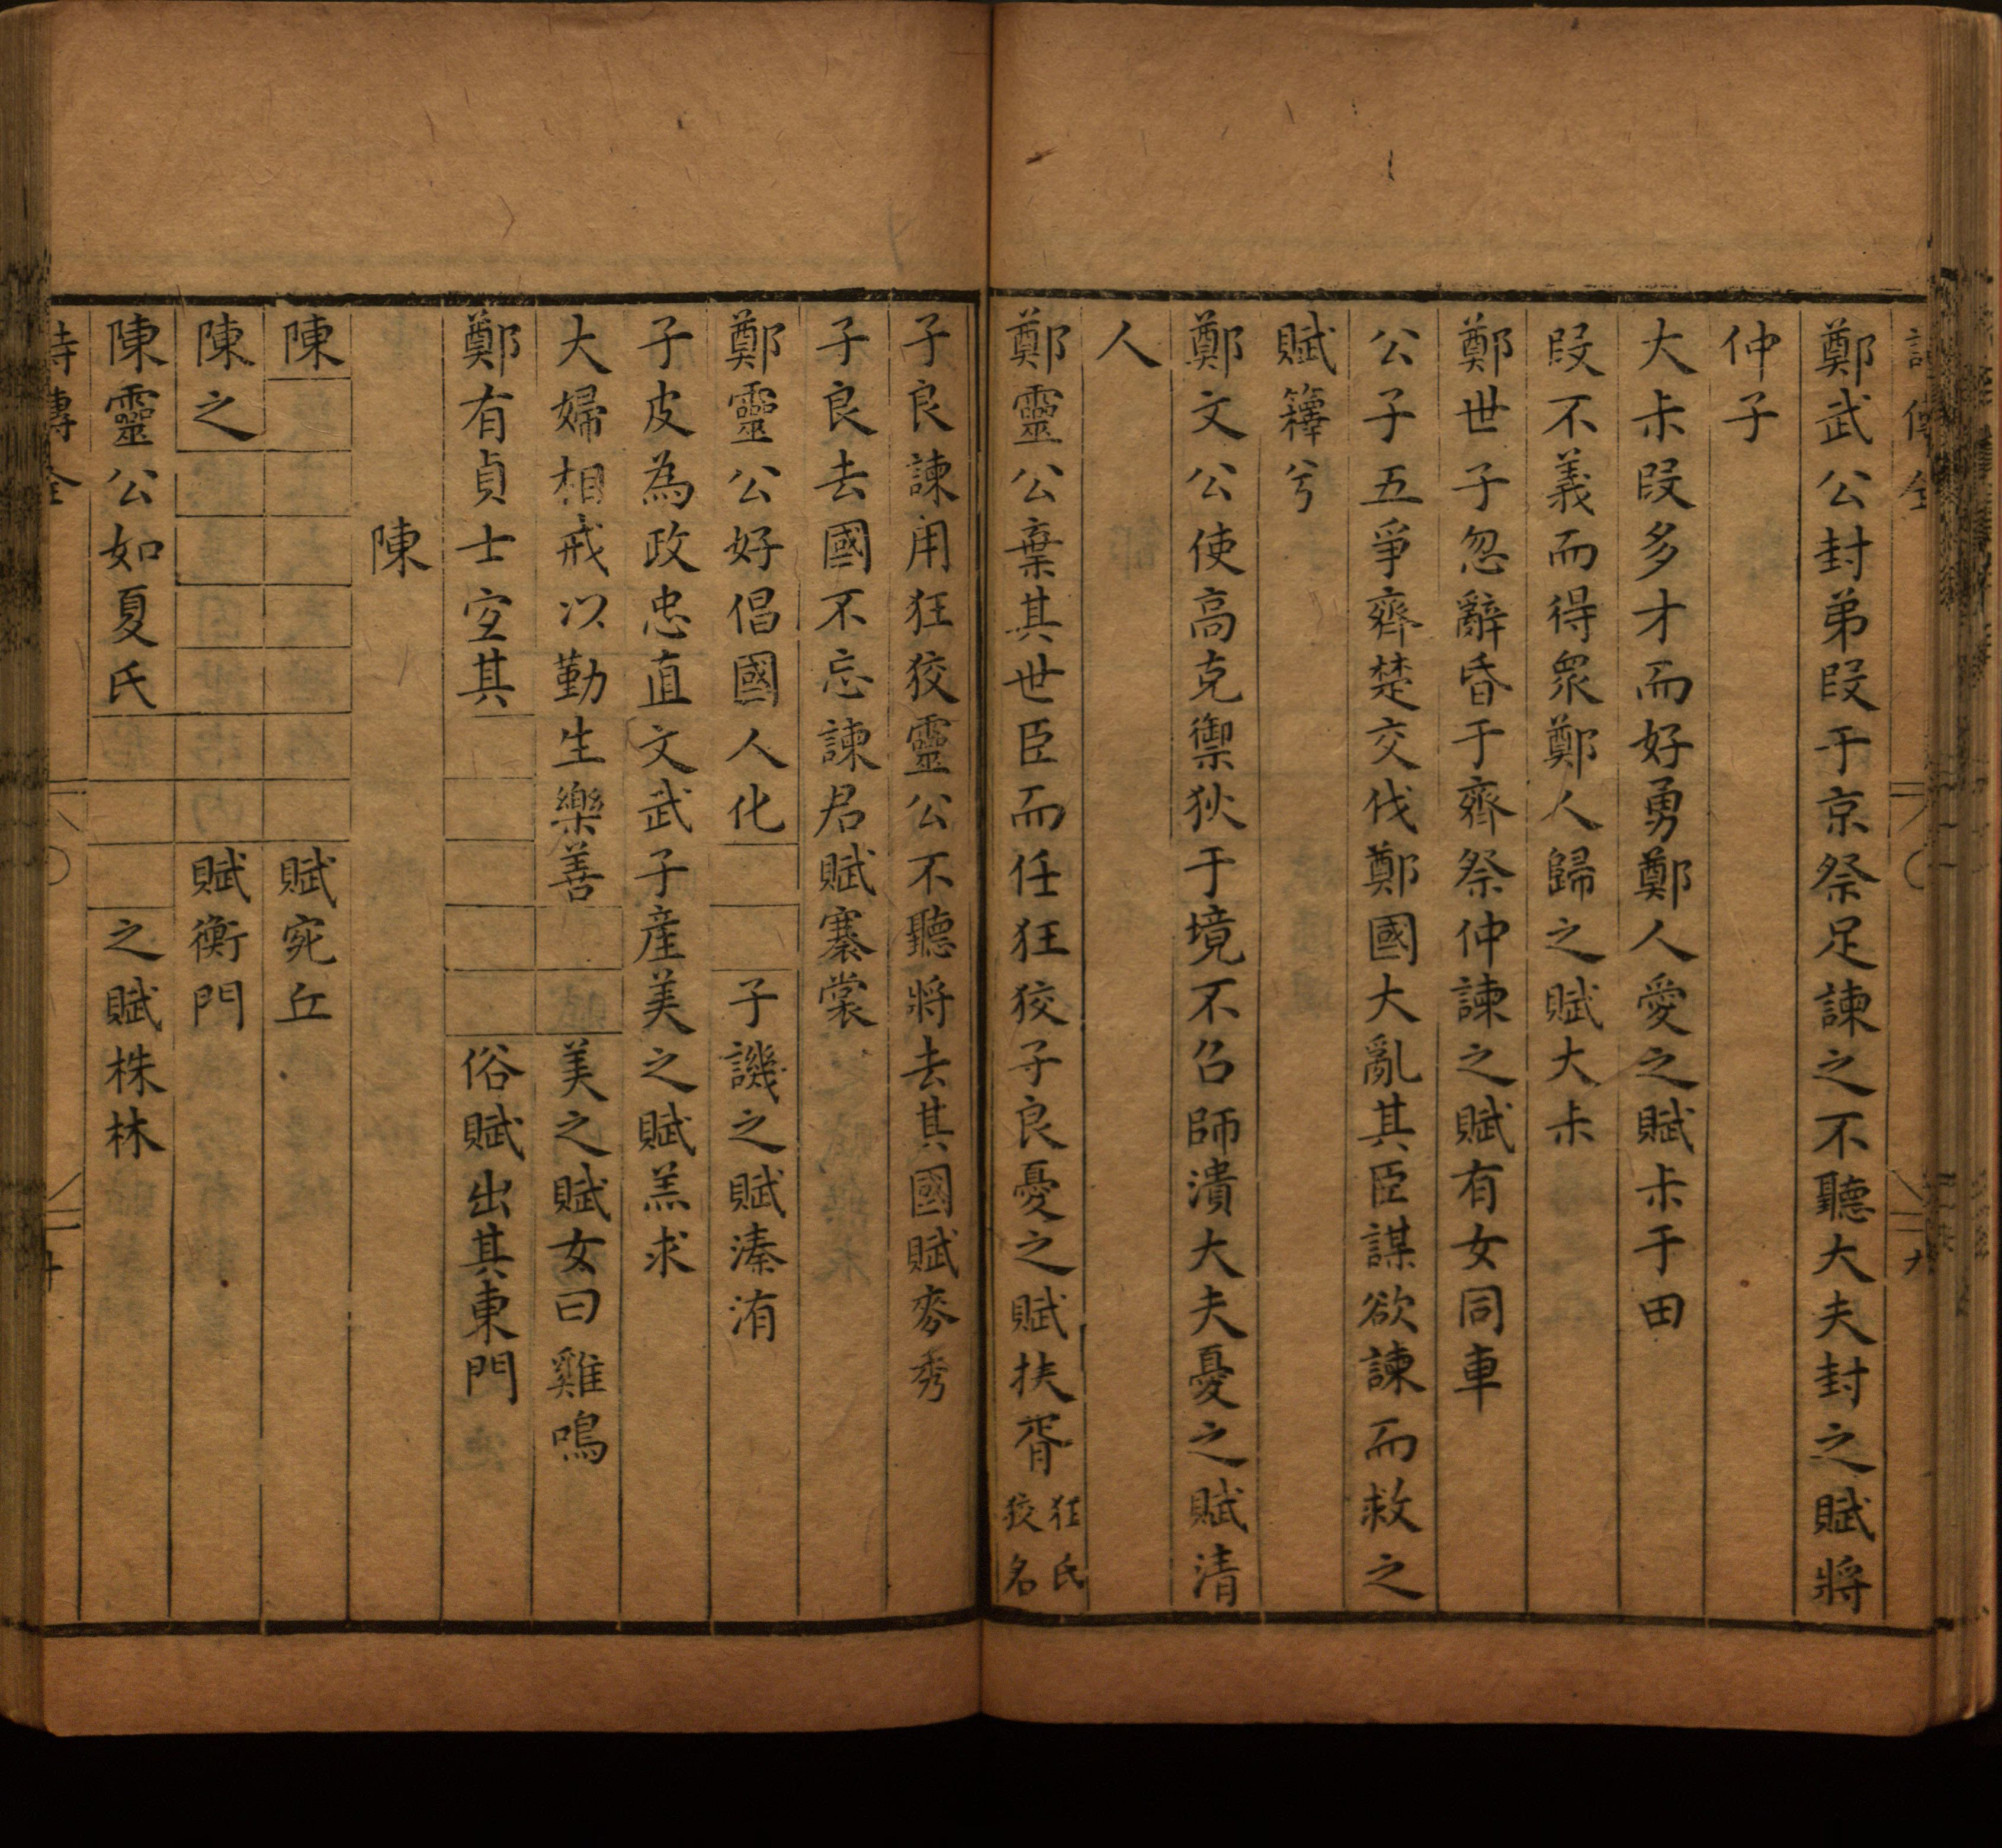 鄭武公封弟段于京祭足諫之不聽大夫封之賦將
仲子
大尗段多才而好勇鄭人愛之賦尗于田
段不義而得眾鄭人歸之賦大尗
鄭世子忽辭昏于齊祭仲諫之賦有女同車
公子五爭齊楚交伐鄭國大亂其臣謀欲諫而救之
賦蘀兮
鄭文公使高克禦狄于境不召師潰大夫憂之賦清
人
鄭靈公棄其世臣而任狂狡子良憂之賦扶胥狂氏狡名
子良諫用狂狡靈公不聽將去其國賦麥秀
子良去國不忘諫君賦褰裳
鄭靈公好倡國人化□□子譏之賦溱洧
子皮為政忠直文武子產美之賦羔求
大婦相戒以勤生樂善□□美之賦女曰雞鳴
鄭有貞士室其□□□□□俗賦出其東門
陳
陳□□□□□□□賦宛丘
陳之□□□□□□賦衡門
陳靈公如夏氏□□□之賦株林
詩傳全